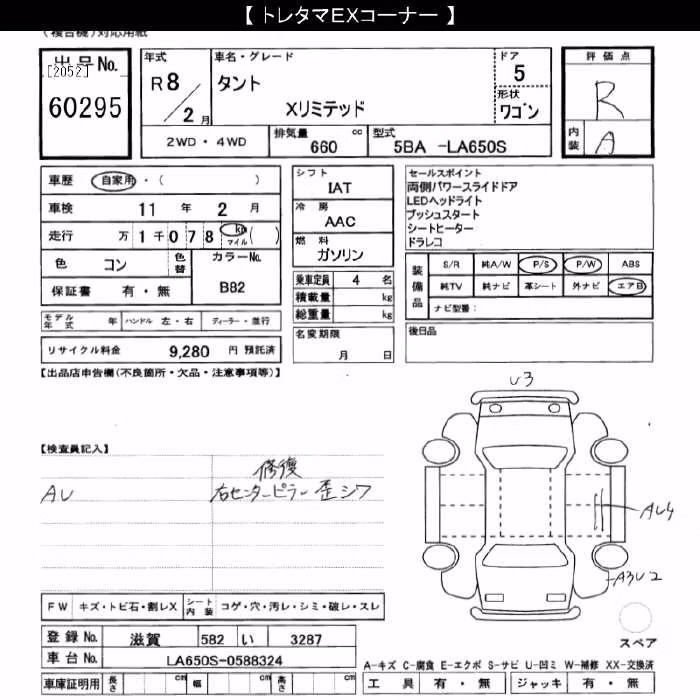 【 トレタマEXコーナー 】
(複合機)対応用紙
出品No.
[2052]
60295
年式
R8/2月
車名・グレード
タント
Xリミテッド
ドア
5
形状
ワゴン
評価点
R
内装
A
2WD・4WD
排気量 660 cc
型式 5BA -LA650S
車歴 自家用・( )
車検 11 年 2 月
走行 万 1 千 0 7 8 km マイル ( )
色 コン 色替
カラーNo. B82
保証書 有・無
シフト
IAT
冷房
AAC
燃料
ガソリン
乗車定員 4 名
積載量 kg
総重量 kg
セールスポイント
両側パワースライドドア
LEDヘッドライト
プッシュスタート
シートヒーター
ドラレコ
装備品
S/R 純A/W P/S P/W ABS
純TV 純ナビ 革シート 外ナビ エアB
ナビ型番:
モデル年式 年 ハンドル 左・右 ディーラー・並行
リサイクル料金 9,280 円 預託済
名変期限
月 日
後日品
【出品店申告欄(不良箇所・欠品・注意事項等)】
U3
【検査員記入】
修復
AU 右センターピラー歪シワ
AU4
A3U2
FW キズ・トビ石・割レX シート内装 コゲ・穴・汚レ・シミ・破レ・スレ
スペア
登録No. 滋賀 582 い 3287
車台No. LA650S-0588324
A-キズ C-腐食 E-エクボ S-サビ U-凹ミ W-補修 XX-交換済
車庫証明用 長さ cm 幅 cm 高さ cm
工具 有・無 ジャッキ 有・無